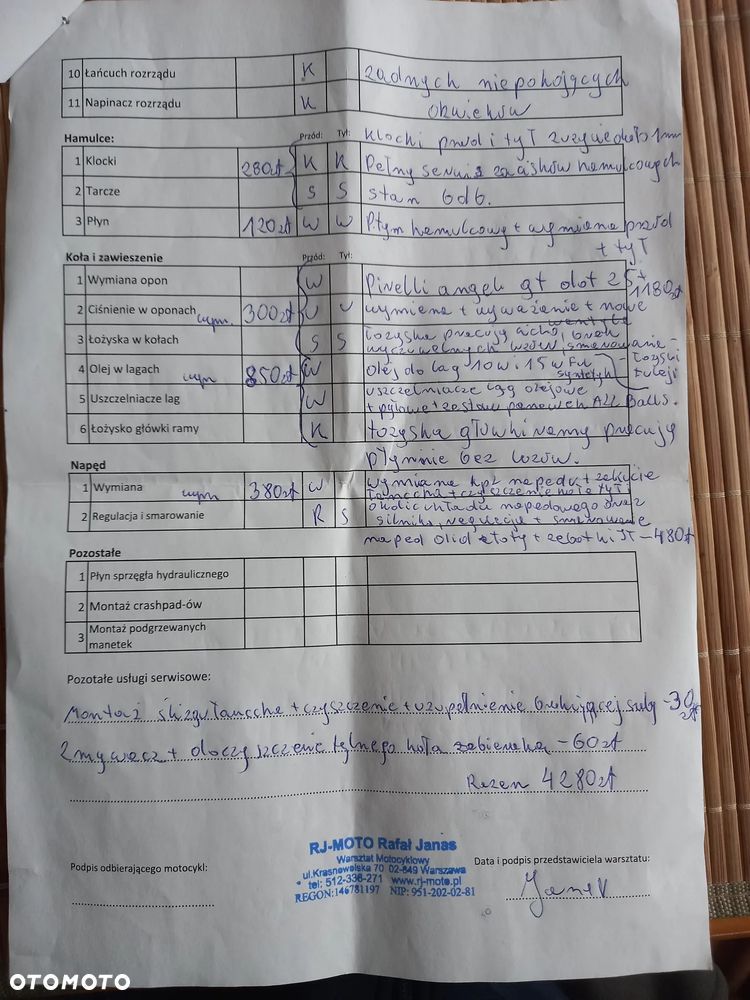 10 Łańcuch rozrządu K żadnych niepokojących
11 Napinacz rozrządu K
Hamulce: Przód: Tył: klocki przód i tył
1 Klocki 280zł K K Pełny serwis zacisków hamulcowych
2 Tarcze S S stan bdb.
3 Płyn 120zł W W Płyn hamulcowy + wymiana przód
+ tył
Koła i zawieszenie Przód: Tył:
1 Wymiana opon W Pirelli angel gt dot 25 1180zł
2 Ciśnienie w oponach wym. 300zł wymiana + wyważanie + nowe
3 Łożyska w kołach S S łożyska pracują cicho, brak
4 Olej w lagach wym 850zł W olej do lag 10w i 15w
5 Uszczelniacze lag W uszczelniacze lag olejowe
+ pyłowe + zestaw panewek All Balls.
6 Łożysko główki ramy K łożyska główki ramy pracują
płynnie bez luzów.
Napęd
1 Wymiana wym 380zł W wymiana kpl napędu + zakucie
łańcucha + czyszczenie koła tył i
2 Regulacja i smarowanie R S okolic układu napędowego oraz
silnika, regulacja + smarowanie
napęd did złoty + zębatki JT - 480zł
Pozostałe
1 Płyn sprzęgła hydraulicznego
2 Montaż crashpad-ów
3 Montaż podgrzewanych manetek
Pozotałe usługi serwisowe:
Montaż ślizgu łańcucha + czyszczenie + uzupełnienie brakującej śruby - 30 zł
Zmywacz + doczyszczenie tylnego koła - 60zł
Razem 4280zł
RJ-MOTO Rafał Janas
Warsztat Motocyklowy
ul.Krasnowolska 70 02-849 Warszawa
tel: 512-336-271 www.rj-moto.pl
REGON:146781197 NIP: 951-202-02-81
Podpis odbierającego motocykl: Data i podpis przedstawiciela warsztatu:
OTOMOTO